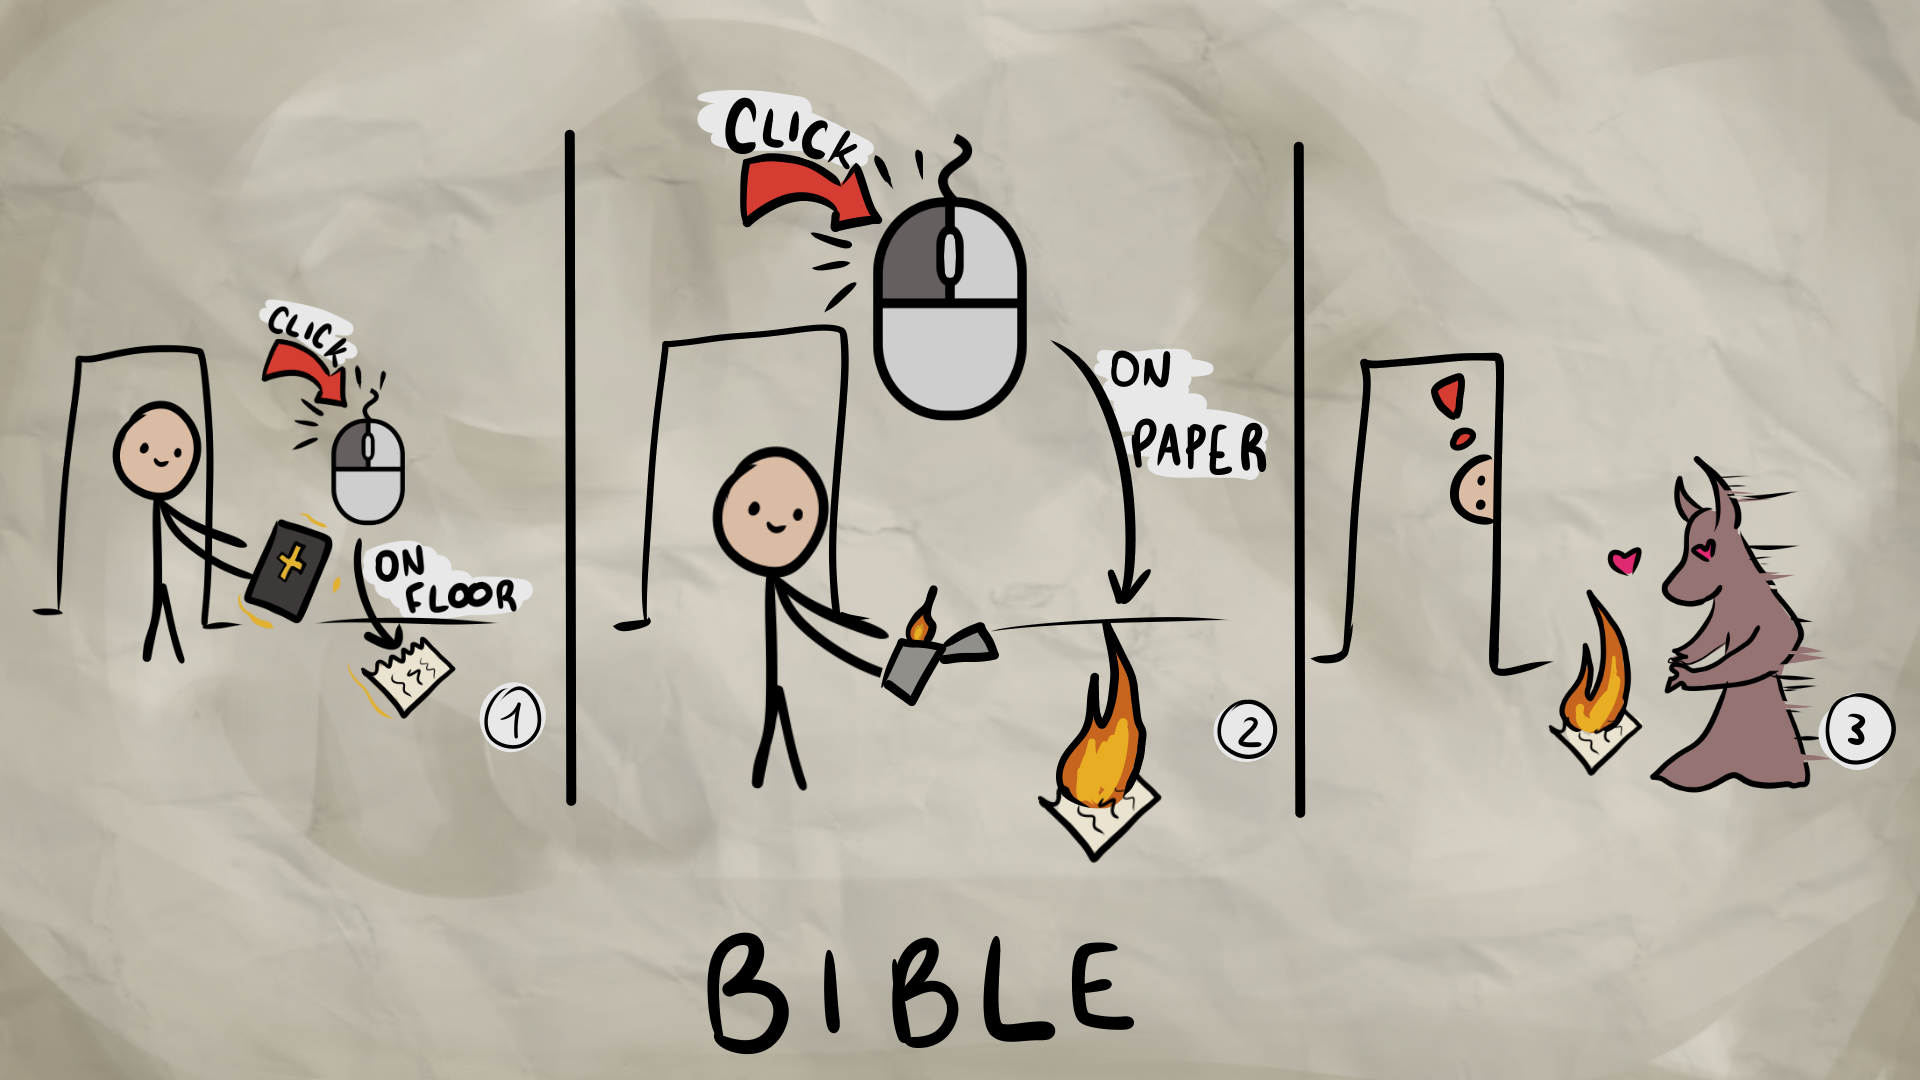 CLICK
ON
FLOOR
1
CLICK
ON
PAPER
2
3
BIBLE